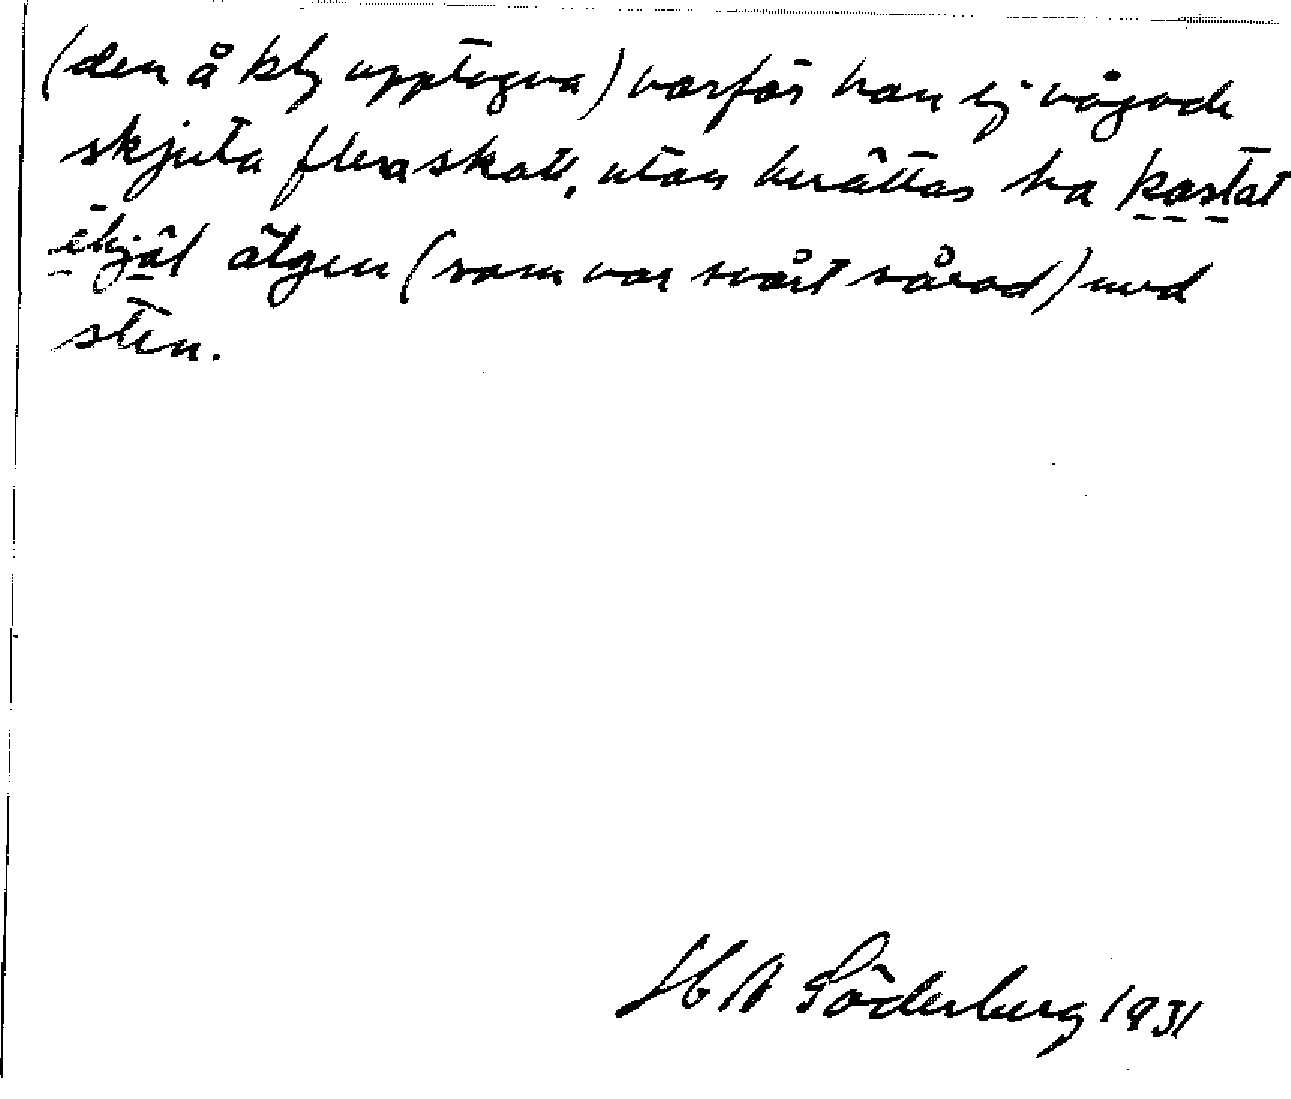 (den å kly upptogva) varför han ej vågade
skjuta flera skott, utan berättas ha kastat
ihjäl älgen (som var svårt sårad) med
sten.
H N Söderberg 1931